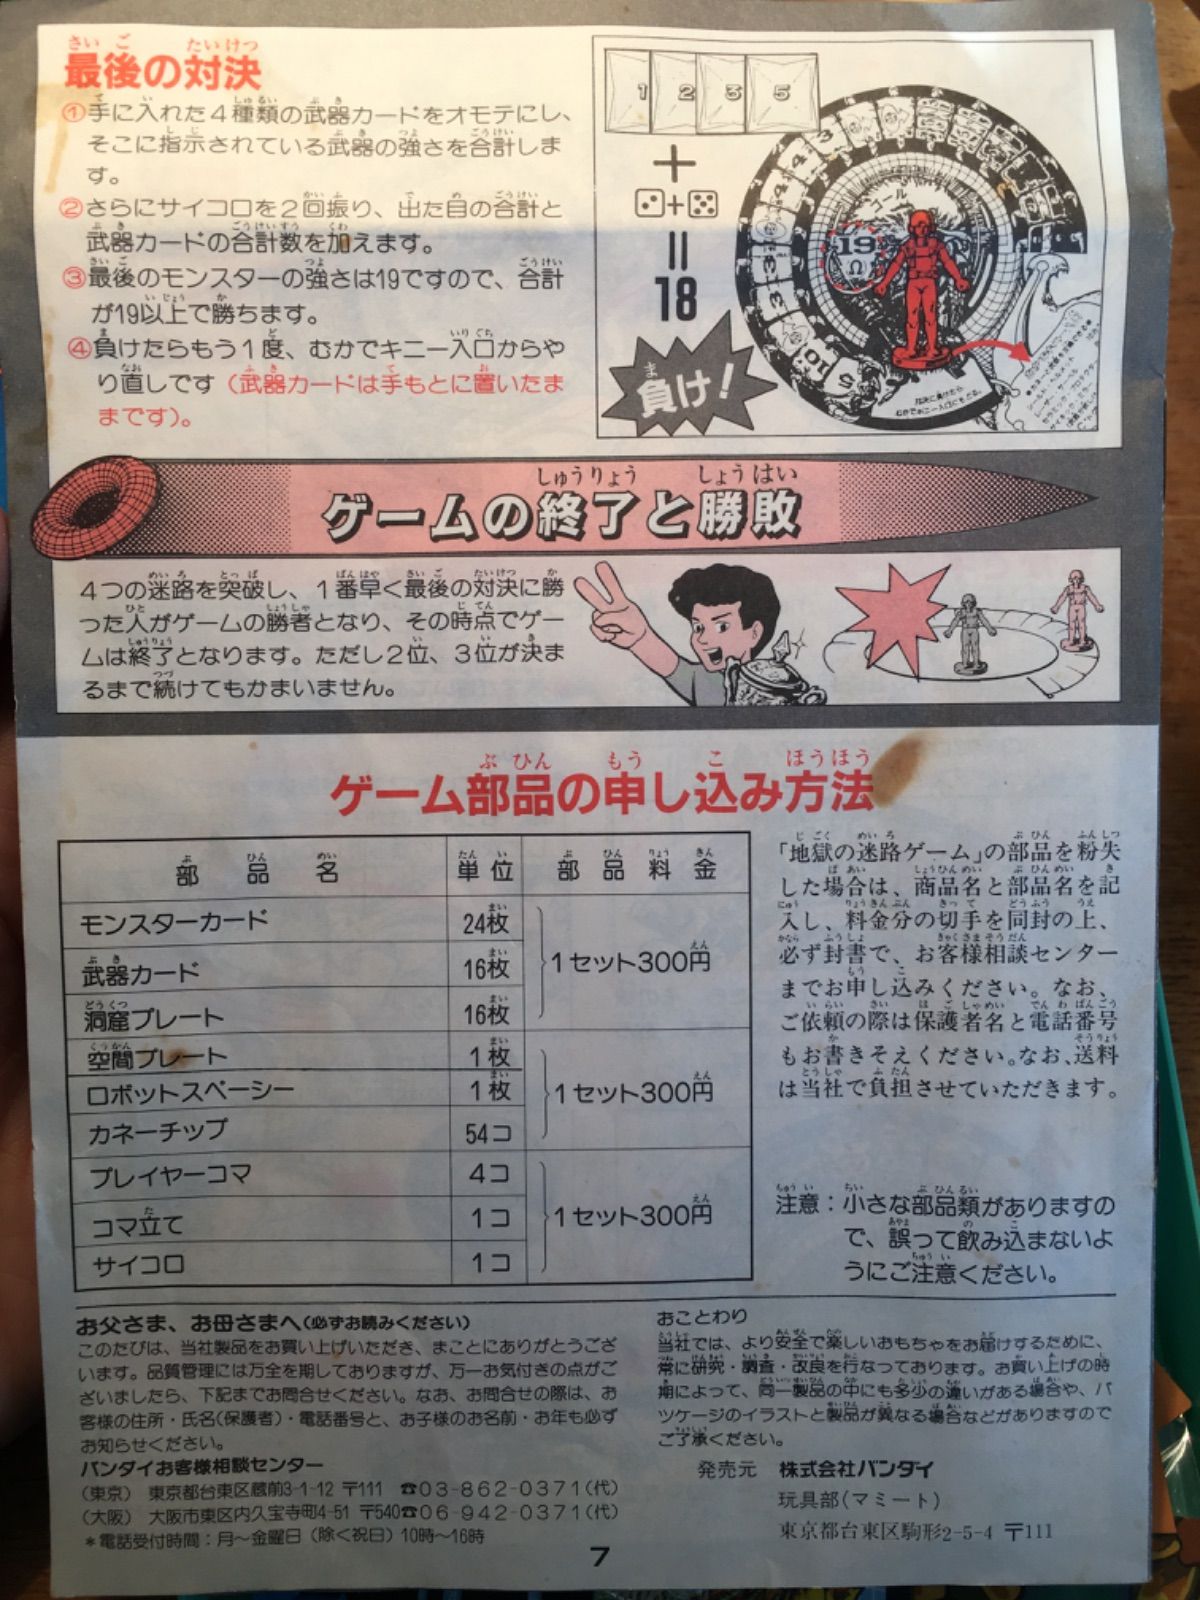 最後の対決
①手に入れた４種類の武器カードをオモテにし、
そこに指示されている武器の強さを合計しま
す。
②さらにサイコロを２回振り、出た目の合計と
武器カードの合計数を加えます。
③最後のモンスターの強さは19ですので、合計
が19以上で勝ちます。
④負けたらもう１度、むかでキニー入口からや
り直しです（武器カードは手もとに置いたま
まです）。
1 2 3 5
＋
＋
＝
18
負け！
ゴール
19
ゲームの終了と勝敗
４つの迷路を突破し、１番早く最後の対決に勝
った人がゲームの勝者となり、その時点でゲー
ムは終了となります。ただし２位、３位が決ま
るまで続けてもかまいません。
ゲーム部品の申し込み方法
部品名 単位 部品料金
モンスターカード 24枚
武器カード 16枚 1セット300円
洞窟プレート 16枚
空間プレート 1枚
ロボットスペーシー 1枚 1セット300円
カネーチップ 54コ
プレイヤーコマ 4コ
コマ立て 1コ 1セット300円
サイコロ 1コ
「地獄の迷路ゲーム」の部品を粉失
した場合は、商品名と部品名を記
入し、料金分の切手を同封の上、
必ず封書で、お客様相談センター
までお申し込みください。なお、
ご依頼の際は保護者名と電話番号
もお書きそえください。なお、送料
は当社で負担させていただきます。
注意：小さな部品類がありますの
で、誤って飲み込まないよ
うにご注意ください。
お父さま、お母さまへ(必ずお読みください)
このたびは、当社製品をお買い上げいただき、まことにありがとうござ
います。品質管理には万全を期しておりますが、万一お気付きの点がご
ざいましたら、下記までお問合せください。なお、お問合せの際は、お
客様の住所・氏名(保護者)・電話番号と、お子様のお名前・お年も必ず
お知らせください。
バンダイお客様相談センター
（東京） 東京都台東区蔵前3-1-12 〒111 ☎03-862-0371(代)
（大阪） 大阪市東区内久宝寺町4-51 〒540☎06-942-0371(代)
＊電話受付時間：月〜金曜日（除く祝日）10時〜16時
おことわり
当社では、より安全で楽しいおもちゃをお届けするために、
常に研究・調査・改良を行なっております。お買い上げの時
期によって、同一製品の中にも多少の違いがある場合や、パ
ッケージのイラストと製品が異なる場合などがありますので
ご了承ください。
発売元 株式会社バンダイ
玩具部(マミート)
東京都台東区駒形2-5-4 〒111
7